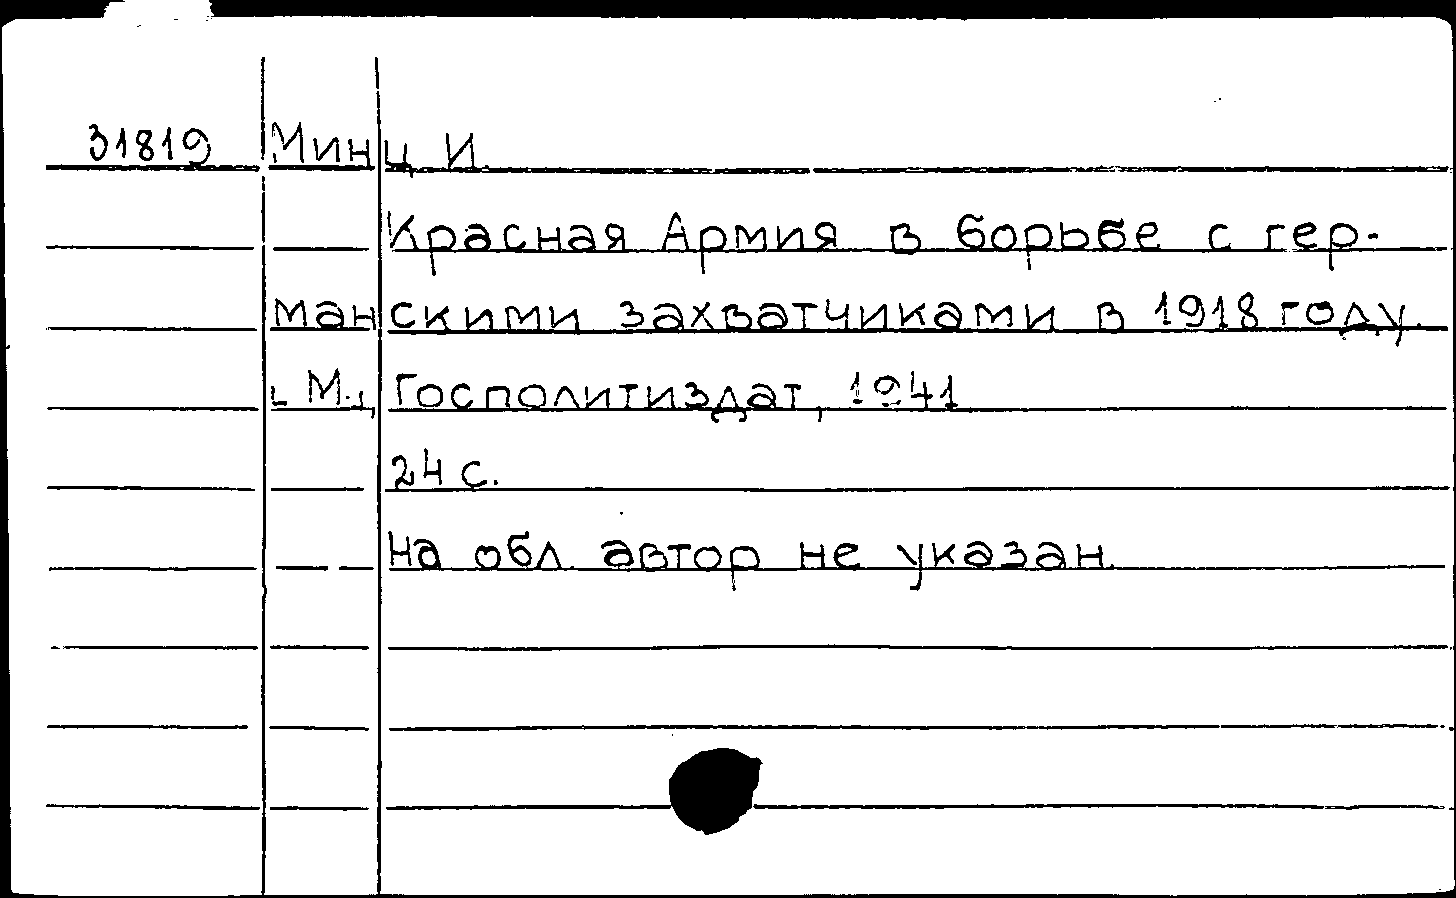 31819 Минц И.
Красная Армия в борьбе с гер-
манскими захватчиками в 1918 году.
М., Госполитиздат, 1941
24 с.
На обл. автор не указан.